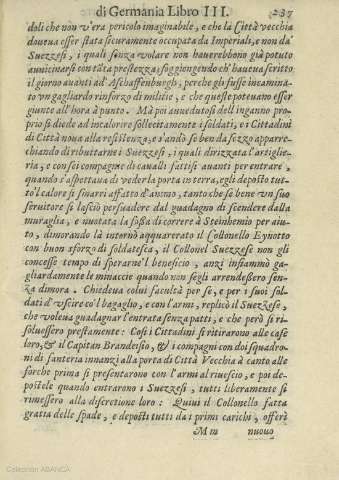 di Germania Libro III. 237
doli che non v'era pericolo imaginabile, e che la Città vecchia
doueua esser stata sicuramente occupata da Imperiali, e non da'
Suezzesi, i quali senza volare non hauerebbono già potuto
auuicinarsi con tāta prestezza, soggiengendo ch'haueua scritto
il giorno auanti ad Aschaffemburgh, perche gli fusse incamina-
to vn gagliardo rinforzo di militie, e che queste poteuano esser
giunte all'hora à punto. Mà poi auuedutosi dell'inganno pro-
prio si diede ad incalorire sollecitamente i soldati, e i Cittadini
di Città noua alla resistenza, e s'andò se ben da sezzo apparec-
chiando di ributtarne i Suezzesi, i quali dirizzata l'artiglie-
ria, e con sei compagnie di caualli fattisi auanti per entrare,
quando s'aspettaua di vederla porta in terra, egli deposto tut-
to'l calore si smarrì affatto d'animo, tanto che se bene vn suo
seruitore si lasciò persuadere dal guadagno di scendere dalla
muraglia, e nuotata la fossa di correre à Steinhemio per aiu-
to, dimorando là intorno acquarerato il Collonello Eynotto
con buon sforzo di soldatesca, il Collonel Suezzese non gli
concesse tempo di sperarne'l beneficio, anzi infiammò ga-
gliardamente le minaccie quando non segli arrendessero sen-
za dimora. Chiedeua colui facoltà per se, e per i suoi sol-
dati d'vscire co'l bagaglio, e con l'armi, replicò il Suezzese,
che voleua guadagnar l'entrata senza patti, e che però si ri-
soluessero prestamente: Così i Cittadini si ritirarono alle case
loro, & il Capitan Brandeisio, & i compagni con doi squadro-
ni di fanteria innanzi alla porta di Città Vecchia à canto alle
forche prima si presentarono con l'armi al riuescio, e poi de-
postele quando entrarono i Suezzesi, tutti liberamente si
rimessero alla discretione loro: Quiui il Collonello fatta
gratia delle spade, e deposti tutti da i primi carichi, offerì
M m nuouo
Colección ABANCA